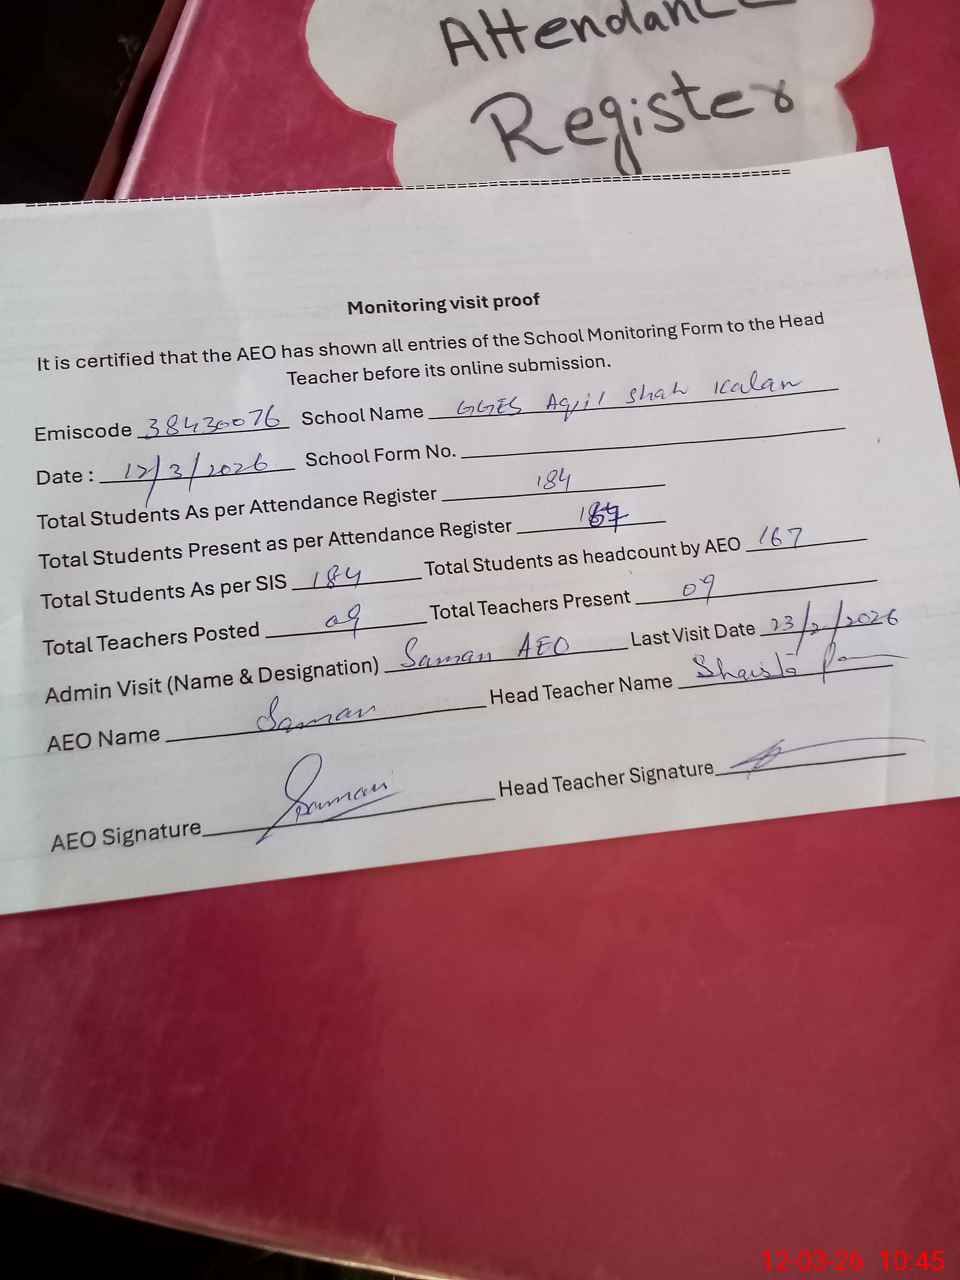 Attendance
Register
Monitoring visit proof
It is certified that the AEO has shown all entries of the School Monitoring Form to the Head
Teacher before its online submission.
Emiscode 38430076 School Name GGES Aqil Shah Kalan
Date : 12/3/2026 School Form No.
Total Students As per Attendance Register 184
Total Students Present as per Attendance Register
Total Students As per SIS 184 Total Students as headcount by AEO 167
Total Teachers Posted 09 Total Teachers Present 09
Admin Visit (Name & Designation) Saman AEO Last Visit Date 23/2/2026
AEO Name Saman Head Teacher Name Shaista
AEO Signature Saman Head Teacher Signature
12-03-26 10:45